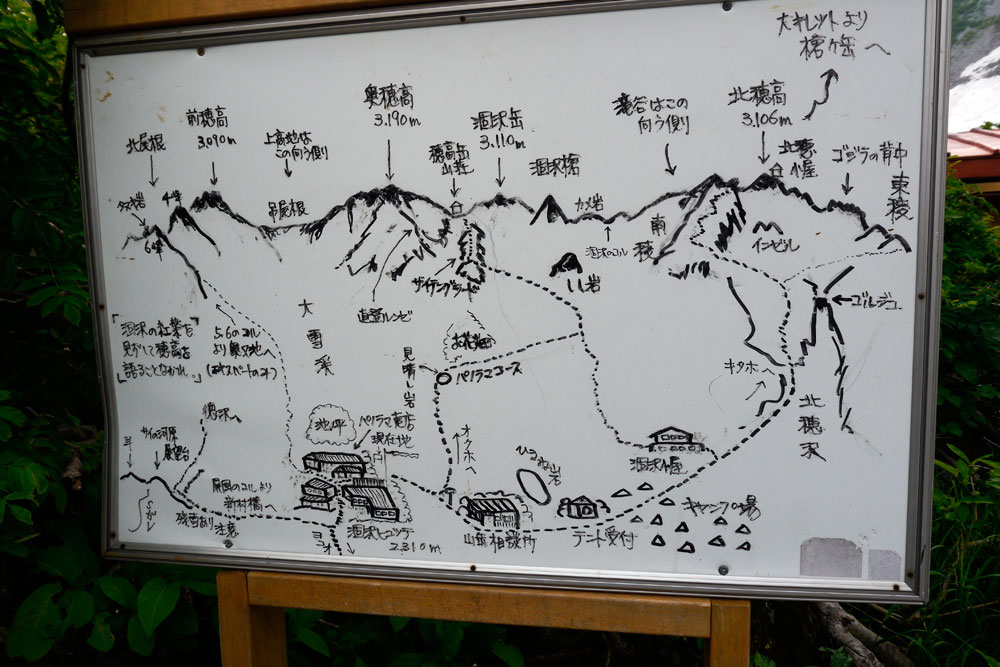 大キレットより
槍ヶ岳へ
奥穂高
3.190m
北穂高
3.106m
前穂高
3.090m
涸沢岳
3.110m
滝谷はこの
向う側
北尾根
上高地は
この向う側
穂高岳
山荘
涸沢槍
北穂
小屋
ゴジラの背中
東稜
4峰
6峰
吊尾根
カメ岩
涸沢のコル
南稜
インゼル
ザイテングラート
しし岩
ゴルジュ
直登ルンゼ
大雪渓
「涸沢の紅葉を
見ずして穂高を
語ることなかれ。」
5.6のコル
より奥又へ
お花畑
見晴し岩
パノラマコース
キタホへ
北穂沢
横沢へ
池ノ平
パノラマ売店
現在地
オクホへ
ひるね岩
涸沢小屋
サイの河原
展望台
屏風のコルより
新村橋へ
残雪あり
注意
涸沢ヒュッテ
2.310m
ヨコオ
山岳相談所
テント受付
キャンプ場